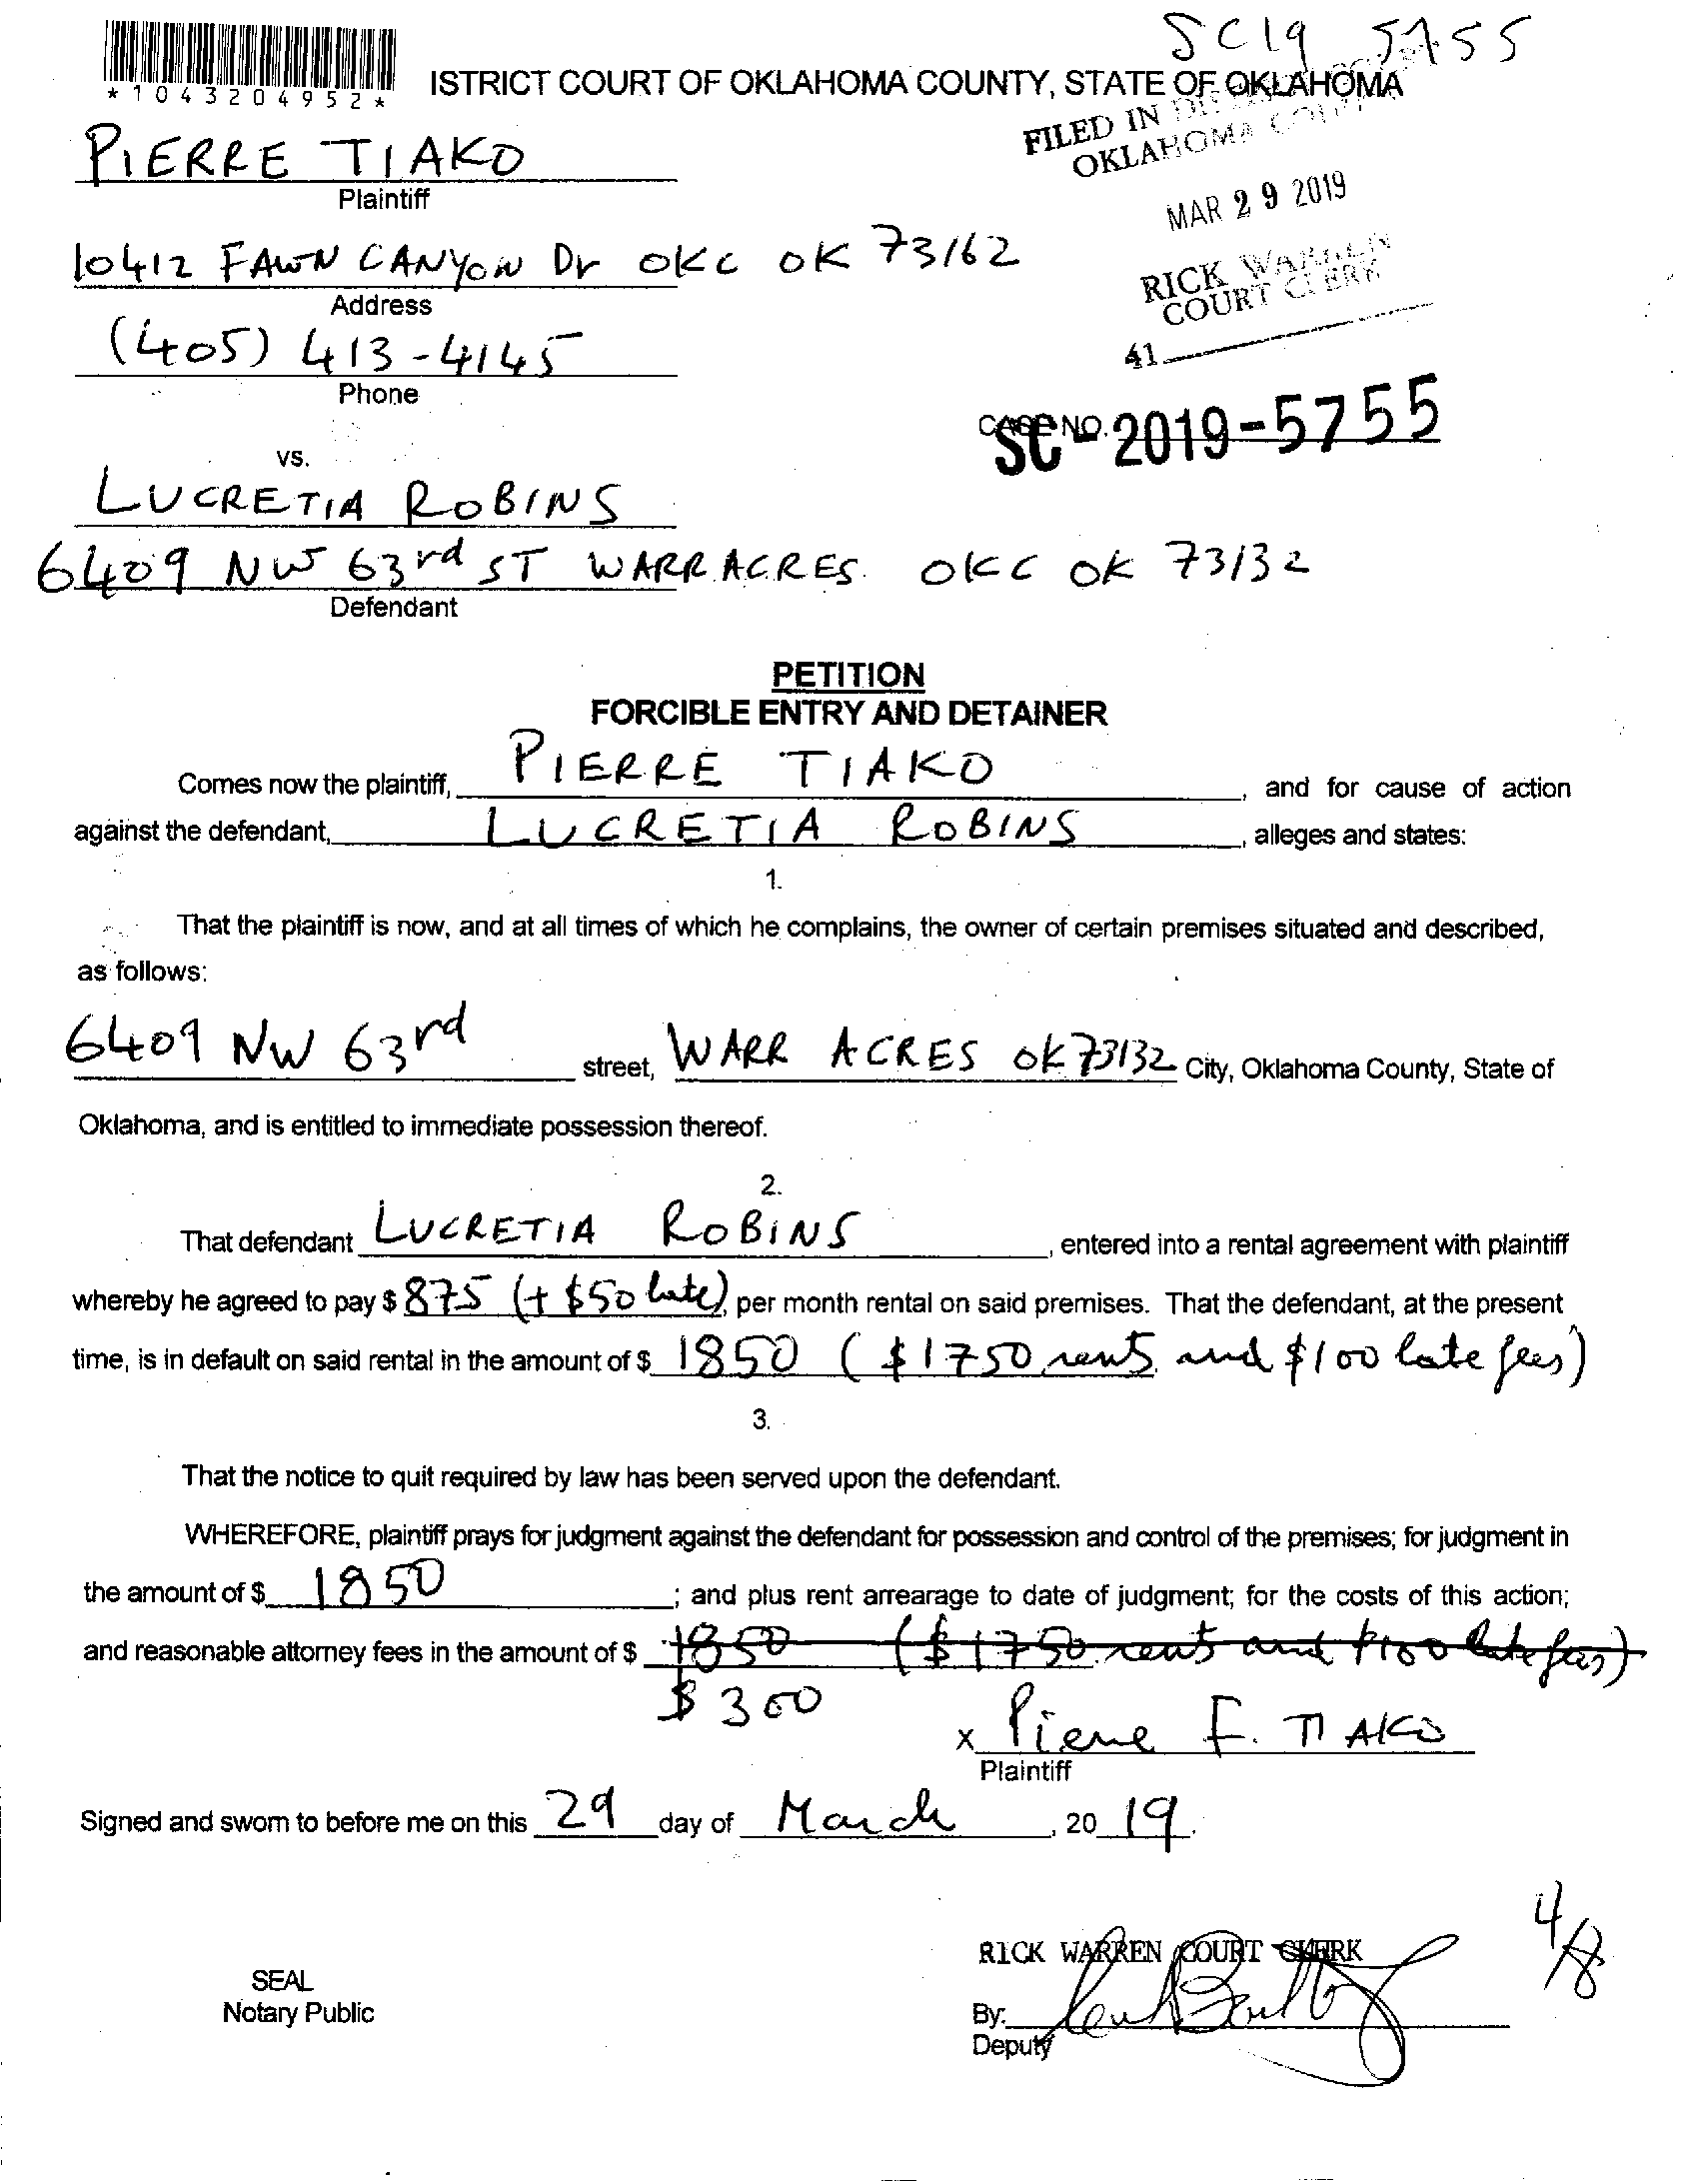 SC19 5755
*1043204952*
ISTRICT COURT OF OKLAHOMA COUNTY, STATE OF OKLAHOMA
FILED IN DISTRICT COURT
OKLAHOMA COUNTY
PIERRE TIAKO
Plaintiff
MAR 29 2019
10412 FAWN CANYON Dr OKC OK 73162
Address
RICK WARREN
COURT CLERK
(405) 413-4145
Phone
41
CASE NO. SC-2019-5755
vs.
LUCRETIA ROBINS
6409 NW 63rd ST WARR ACRES. OKC OK 73132
Defendant
PETITION
FORCIBLE ENTRY AND DETAINER
Comes now the plaintiff, PIERRE TIAKO, and for cause of action
against the defendant, LUCRETIA ROBINS, alleges and states:
1.
That the plaintiff is now, and at all times of which he complains, the owner of certain premises situated and described,
as follows:
6409 NW 63rd street, WARR ACRES OK 73132 City, Oklahoma County, State of
Oklahoma, and is entitled to immediate possession thereof.
2.
That defendant LUCRETIA ROBINS, entered into a rental agreement with plaintiff
whereby he agreed to pay $ 875 (+ $50 late), per month rental on said premises. That the defendant, at the present
time, is in default on said rental in the amount of $ 1850 ($1750 rents and $100 late fees)
3.
That the notice to quit required by law has been served upon the defendant.
WHEREFORE, plaintiff prays for judgment against the defendant for possession and control of the premises; for judgment in
the amount of $ 1850; and plus rent arrearage to date of judgment; for the costs of this action;
and reasonable attorney fees in the amount of $ 1850 ($1750 rents and $100 late fees)
$300
x Pierre F. TIAKO
Plaintiff
Signed and sworn to before me on this 29 day of March, 2019.
4/8
RICK WARREN COURT CLERK
SEAL
Notary Public
By:
Deputy